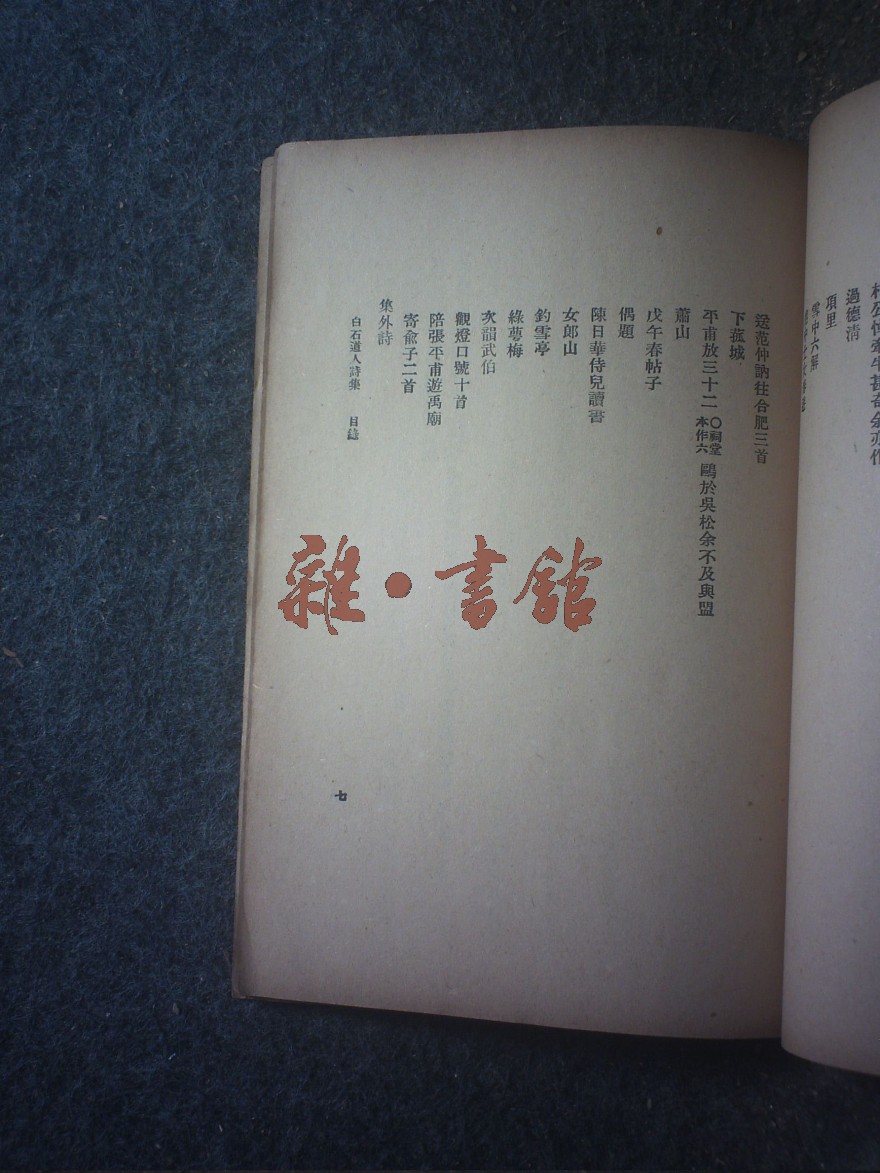 過德清
項里
送范仲訥往合肥三首
下菰城
平甫放三十二〇祠堂本作六鷗於吳松余不及與盟
蕭山
戊午春帖子
偶題
陳日華侍兒讀書
女郎山
釣雪亭
綠萼梅
次韻武伯
觀燈口號十首
陪張平甫遊禹廟
寄俞子二首
集外詩
白石道人詩集 目錄
七
雜・書館